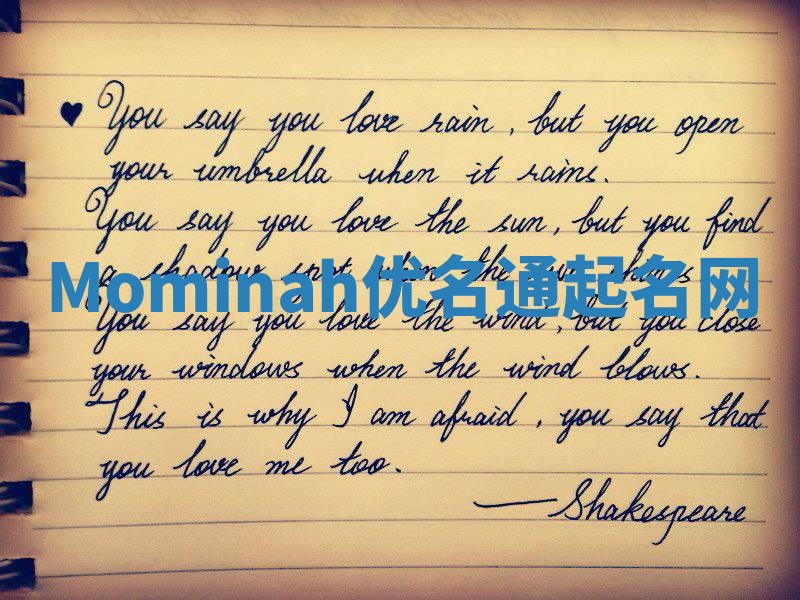 You say you love rain, but you open
your umbrella when it rains.
You say you love the sun, but you find
a shadow spot when the sun shines
Mominah优名通起名网
You say you love the wind, but you close
your windows when the wind blows.
This is why I am afraid, you say that
you love me too.
—Shakespeare